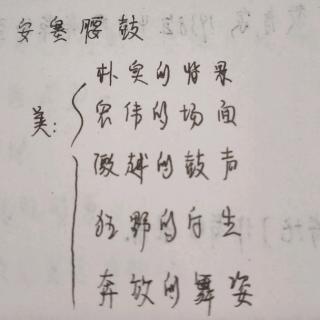 安塞腰鼓
美:
朴实的背景
宏伟的场面
激越的鼓声
狂野的后生
奔放的舞姿